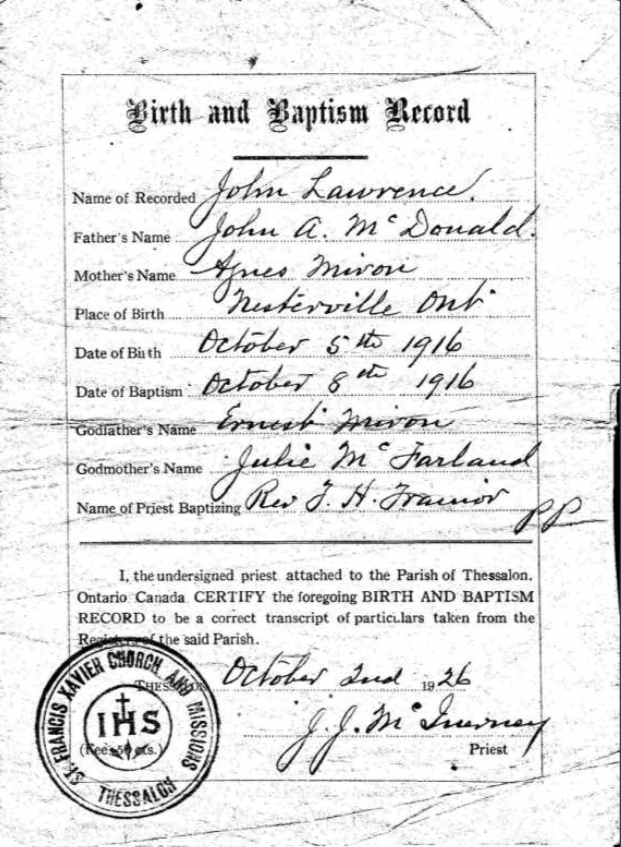 Birth and Baptism Record
Name of Recorded John Lawrence.
Father's Name John A. Mc Donald.
Mother's Name Agnes Miron
Place of Birth Nesterville Ont.
Date of Birth October 5th 1916
Date of Baptism October 8th 1916
Godfather's Name Ernest Miron
Godmother's Name Julie Mc Farland
Name of Priest Baptizing Rev T. H. Trainor
PP
I, the undersigned priest attached to the Parish of Thessalon,
Ontario Canada CERTIFY the foregoing BIRTH AND BAPTISM
RECORD to be a correct transcript of particulars taken from the
Registers of the said Parish.
THESSALON October 2nd 1926
J. J. Mc Inerney
(Fee 50 cts.) Priest
ST. FRANCIS XAVIER CHURCH AND MISSIONS
IHS
THESSALON